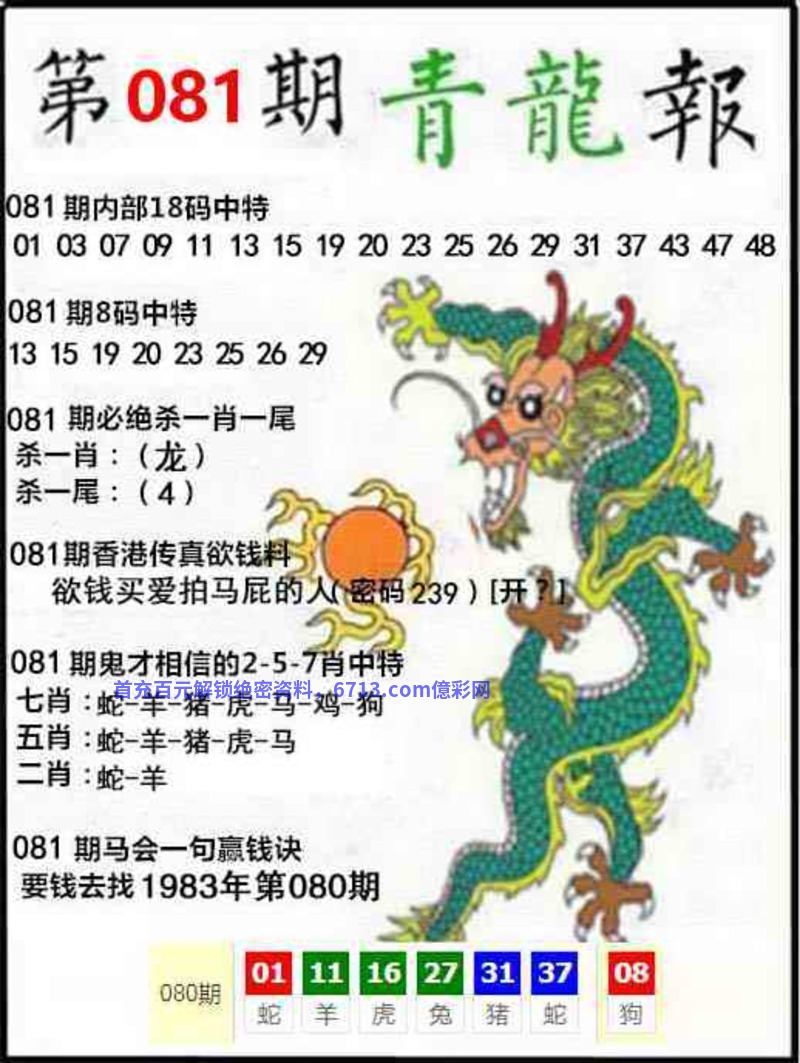 第081期青龍報
081期内部18码中特
01 03 07 09 11 13 15 19 20 23 25 26 29 31 37 43 47 48
081期8码中特
13 15 19 20 23 25 26 29
081期必绝杀一肖一尾
杀一肖：（龙）
杀一尾：（4）
081期香港传真欲钱料
欲钱买爱拍马屁的人（密码239）[开？]
081期鬼才相信的2-5-7肖中特
首充百元解锁绝密资料，6713.com億彩网
七肖：蛇-羊-猪-虎-马-鸡-狗
五肖：蛇-羊-猪-虎-马
二肖：蛇-羊
081期马会一句赢钱诀
要钱去找1983年第080期
080期
01 11 16 27 31 37 08
蛇 羊 虎 兔 猪 蛇 狗